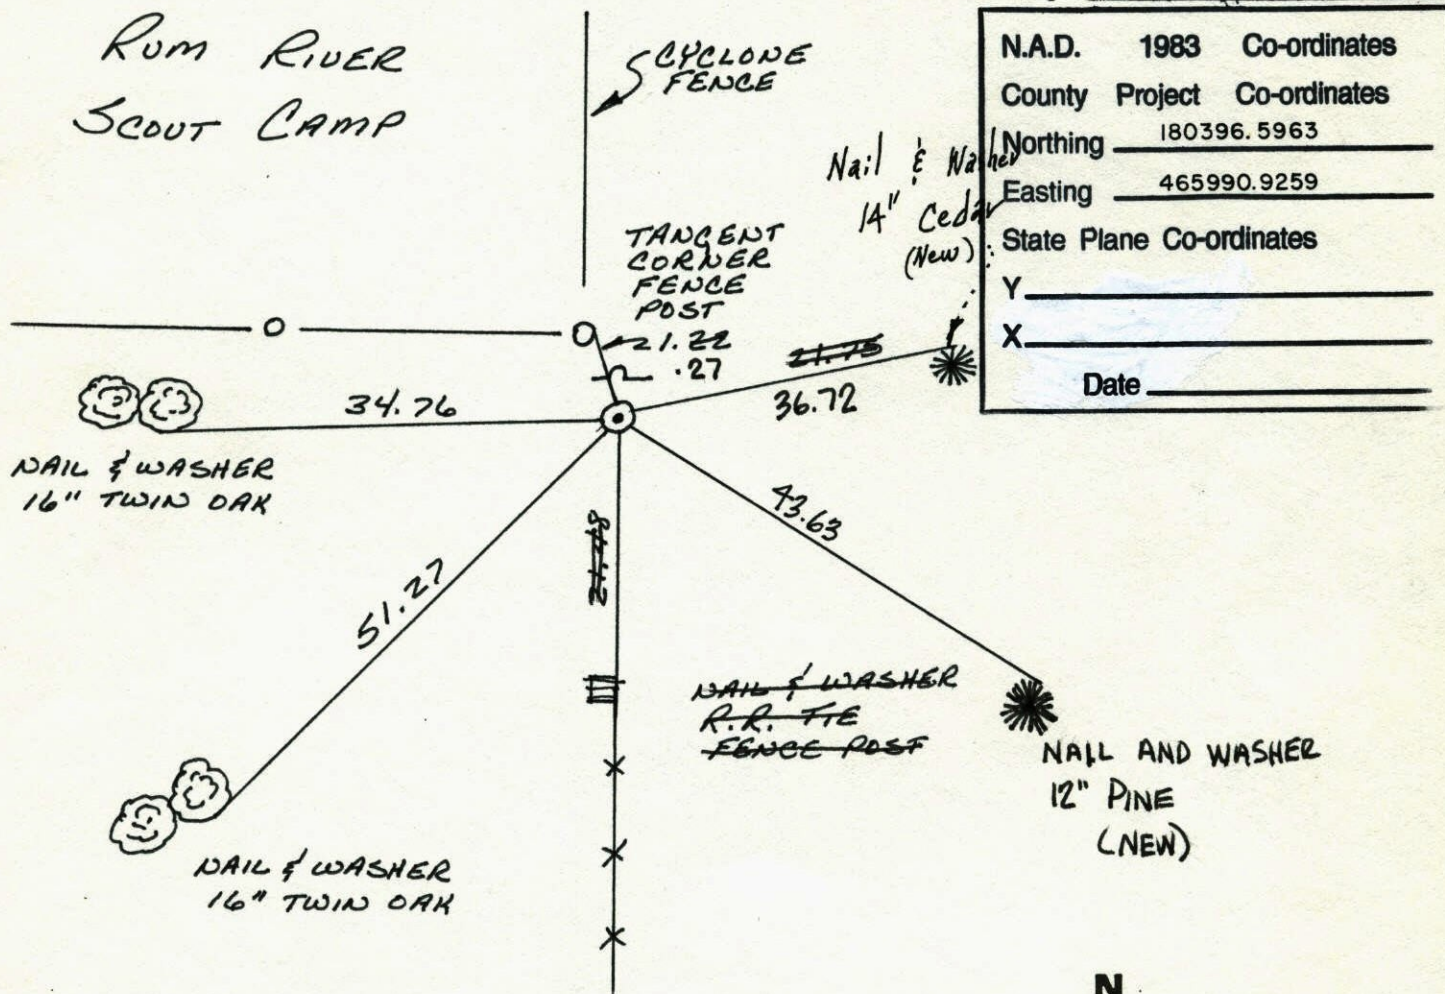 RUM RIVER
SCOUT CAMP
CYCLONE
FENCE
N.A.D. 1983 Co-ordinates
County Project Co-ordinates
Northing 180396.5963
Easting 465990.9259
State Plane Co-ordinates
Y
X
Date
Nail & Washer
14" Cedar
(New)
TANGENT
CORNER
FENCE
POST
1.22
.27
21.75
36.72
34.76
NAIL & WASHER
16" TWIN OAK
43.63
21.48
51.27
NAIL & WASHER
R.R. TIE
FENCE POST
NAIL AND WASHER
12" PINE
(NEW)
NAIL & WASHER
16" TWIN OAK
N